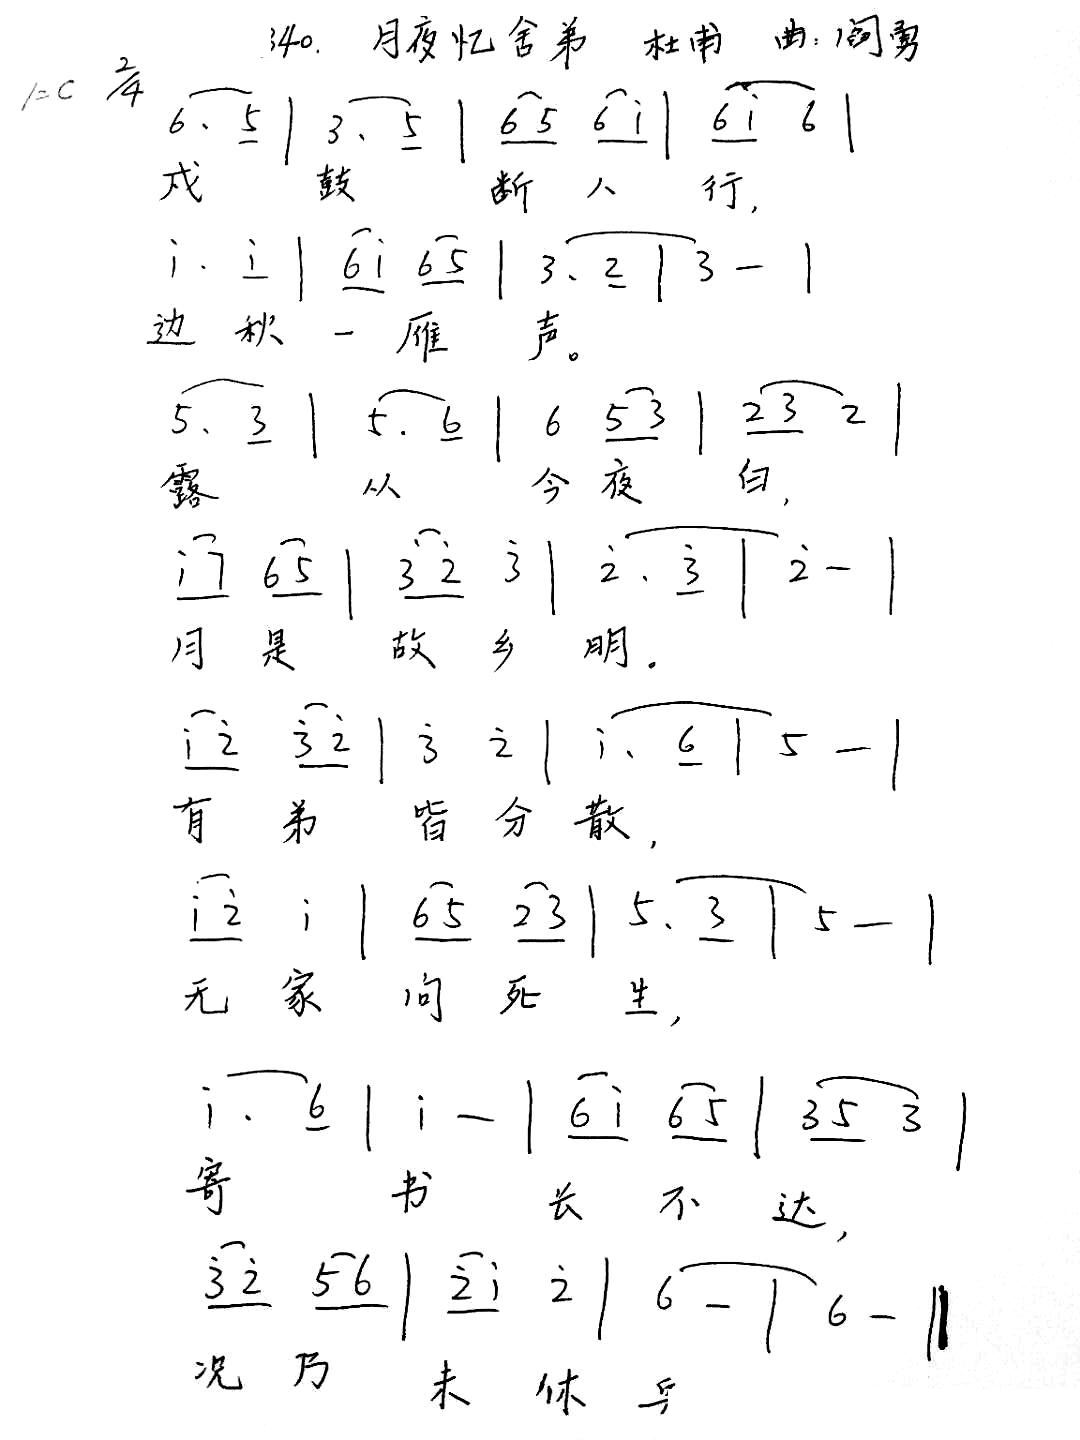 340. 月夜忆舍弟 杜甫 曲:阎勇
1=C 2/4
6. 5 | 3. 5 | 65 6i | 6i 6 |
戍 鼓 断 人 行,
i. i | 6i 65 | 3. 2 | 3 - |
边 秋 一 雁 声。
5. 3 | 5. 6 | 6 53 | 23 2 |
露 从 今 夜 白,
i7 65 | 3̇2̇ 3̇ | 2̇. 3̇ | 2̇ - |
月 是 故 乡 明.
i2̇ 3̇2̇ | 3̇ 2̇ | i. 6 | 5 - |
有 弟 皆 分 散,
i2̇ i | 65 23 | 5. 3 | 5 - |
无 家 问 死 生,
i. 6 | i - | 6i 65 | 35 3 |
寄 书 长 不 达,
3̇2̇ 56 | 2̇i 2̇ | 6 - | 6 - ||
况 乃 未 休 兵